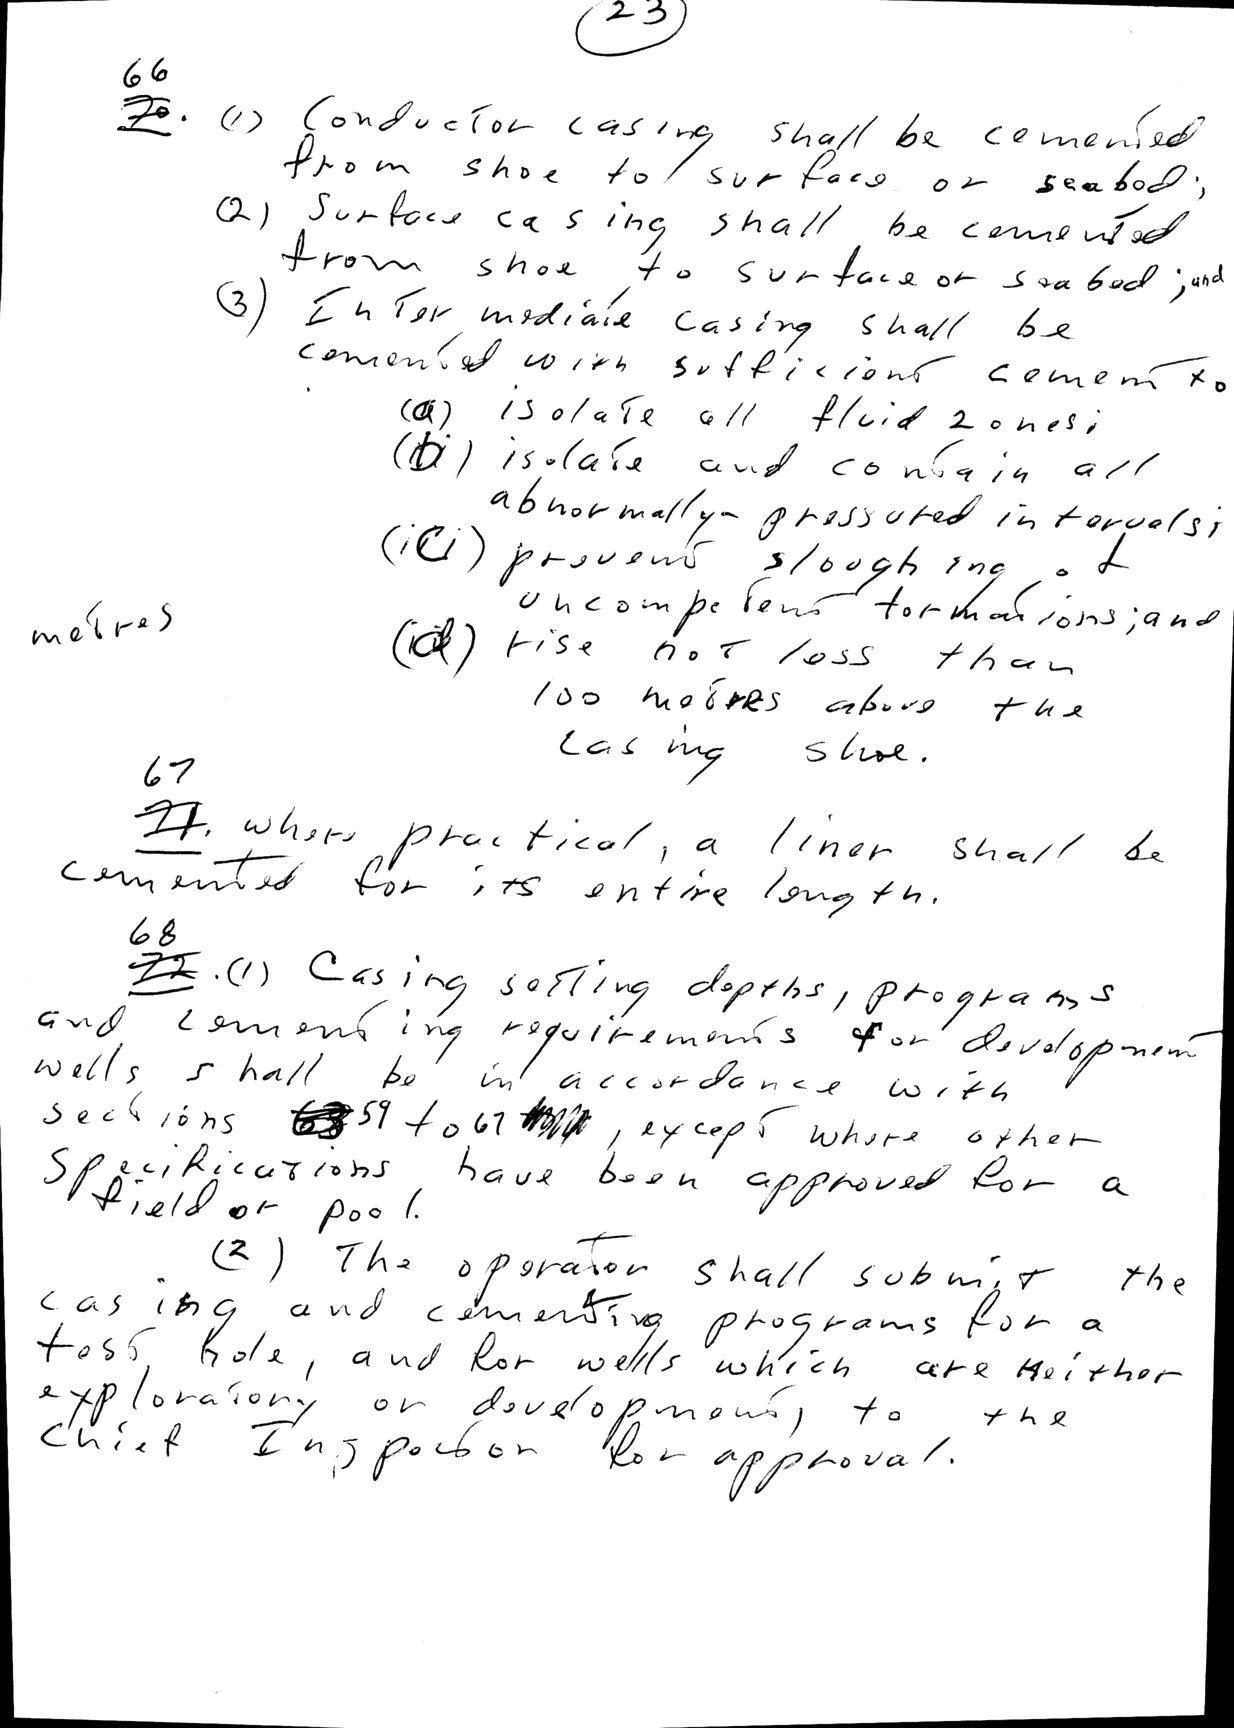 23
66
70. (1) Conductor casing shall be cemented
from shoe to surface or seabed;
(2) Surface casing shall be cemented
from shoe to surface or seabed; and
(3) Intermediate casing shall be
cemented with sufficient cement to
(a) isolate all fluid zones;
(b) isolate and contain all
abnormally-pressured intervals;
(c) prevent sloughing of
uncompetent formations; and
metres
(d) rise not less than
100 metres above the
casing shoe.
67
71. where practical, a liner shall be
cemented for its entire length.
68
72. (1) Casing setting depths, programs
and cementing requirements for development
wells shall be in accordance with
sections 59 to 67, except where other
specifications have been approved for a
field or pool.
(2) The operator shall submit the
casing and cementing programs for a
test hole, and for wells which are neither
exploratory or development, to the
Chief Inspector for approval.